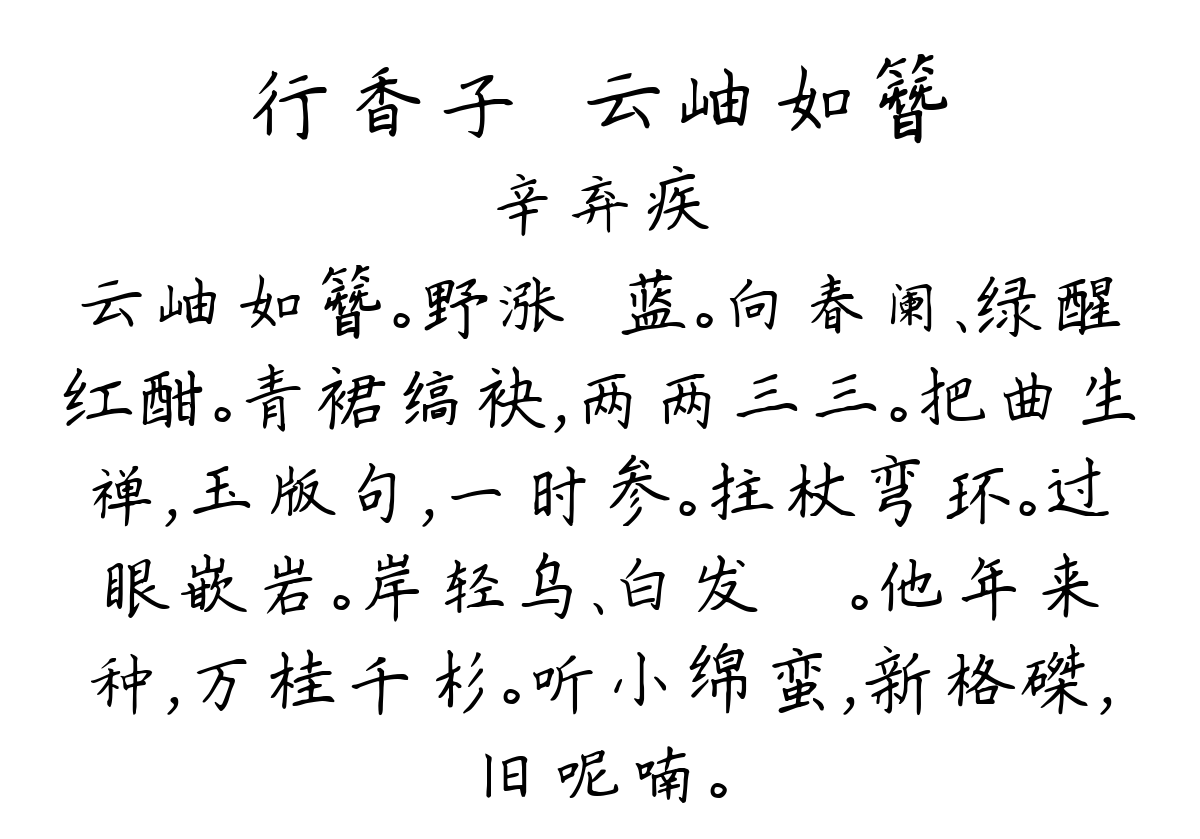 行香子 云岫如簪
辛弃疾
云岫如簪。野涨 蓝。向春阑、绿醒
红酣。青裙缟袂,两两三三。把曲生
禅,玉版句,一时参。拄杖弯环。过
眼嵌岩。岸轻乌、白发 。他年来
种,万桂千杉。听小绵蛮,新格磔,
旧呢喃。